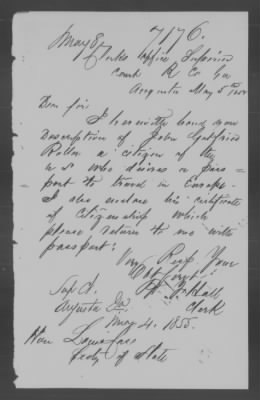 7176.
May 8
Clerks Office Superior
Court R. Co Ga
Augusta May 5th
Dear Sir
I herewith hand you
Description of John
a citizen of the
U S who desires a pass =
port to travel in Europe.
I also enclose his certificate
of citizenship which
please return to me with
passport:
Very Resp Your
Obt Servt
Hall
Clerk
Augusta Ga
May 4. 1855.
Hon
Secty of State